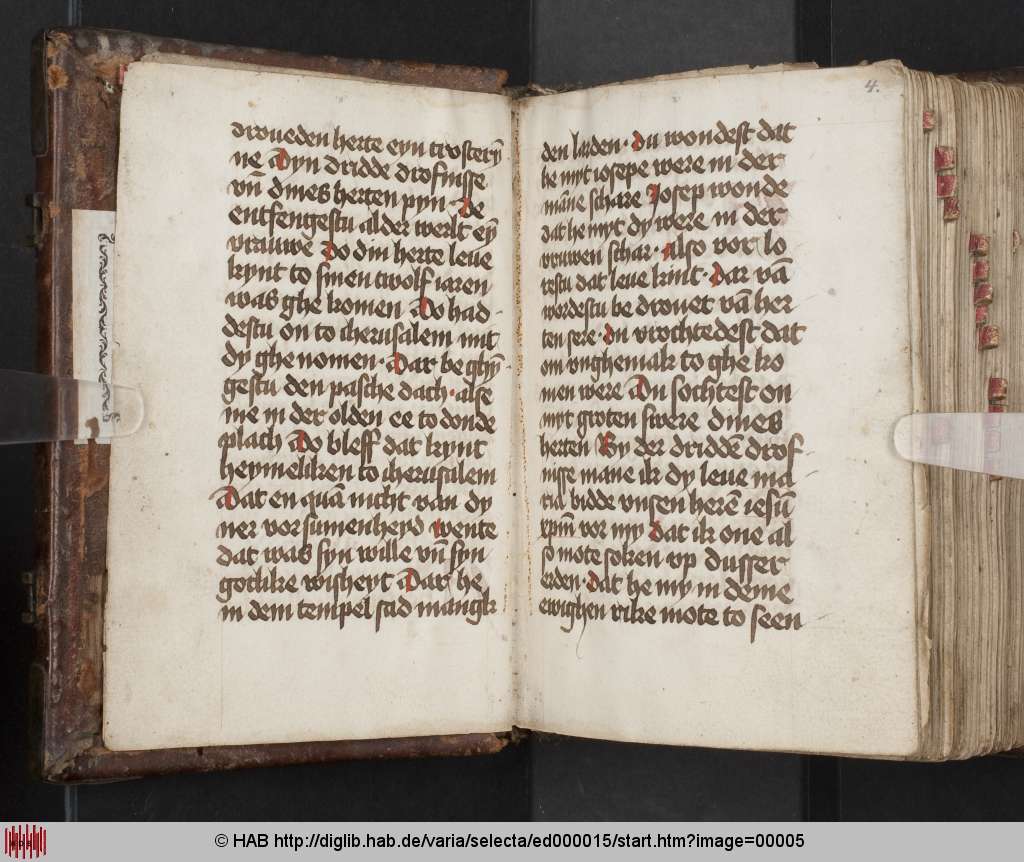 droueden herte eyn trostery̅
ne Dyn dridde drofnisse
vn̅ dines herten pyn De
entfengestu alder werlt ey̅
vrauwe Do din herte leue
kynt to sinen twolf iaren
was ghe komen Do had
destu on to iherusalem mit
dy ghe nomen · Dar be ghy̅
gestu den pasche dach · alse
me in der olden ee to donde
plach Do bleff dat kynt
heymeliken to iherusalem
Dat en qua̅ nicht van dy
ner vorsumenheyd wente
dat was syn wille vn̅ syn
gotlike wisheyt Dar he
in dem tempel sad mangk
4.
den · du wondest dat
he myt iosepe were in der
ma̅ne schare Josep wonde
dat he myt dy were in der
vruwen schar · also vor lo
restu dat leue kint · Dar va̅
wordestu be drouet va̅ her
ten sere · du vrochtedest dat
om vnghemak to ghe ko
men were Du sochtest on
myt groten swere dines
herten By der dridde̅ drof
nisse mane ik dy leue ma
ria bidde vnsen here̅ iesu̅
xpm̅ vor my dat ik one al
so mote soken vp dusser
erden · dat he my in deme
ewighen rike mote to seen
© HAB http://diglib.hab.de/varia/selecta/ed000015/start.htm?image=00005